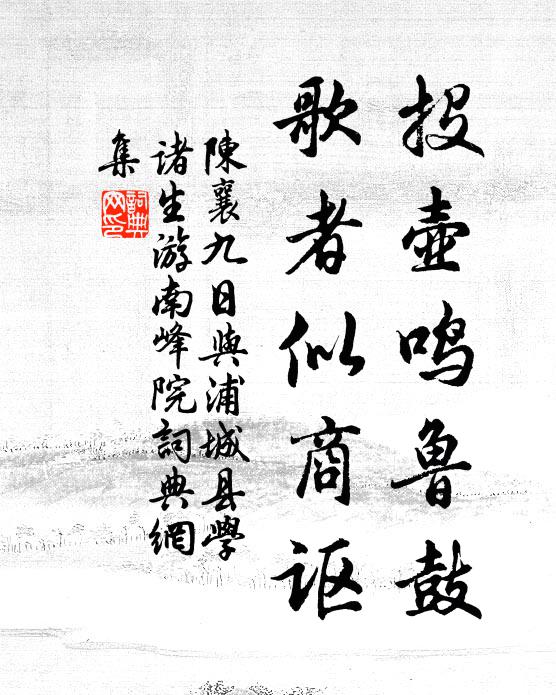 投壶鸣鲁鼓
歌者似商讴
陳襄九日與浦城县學
诸生游南峰院詞典網
集
詞典网印